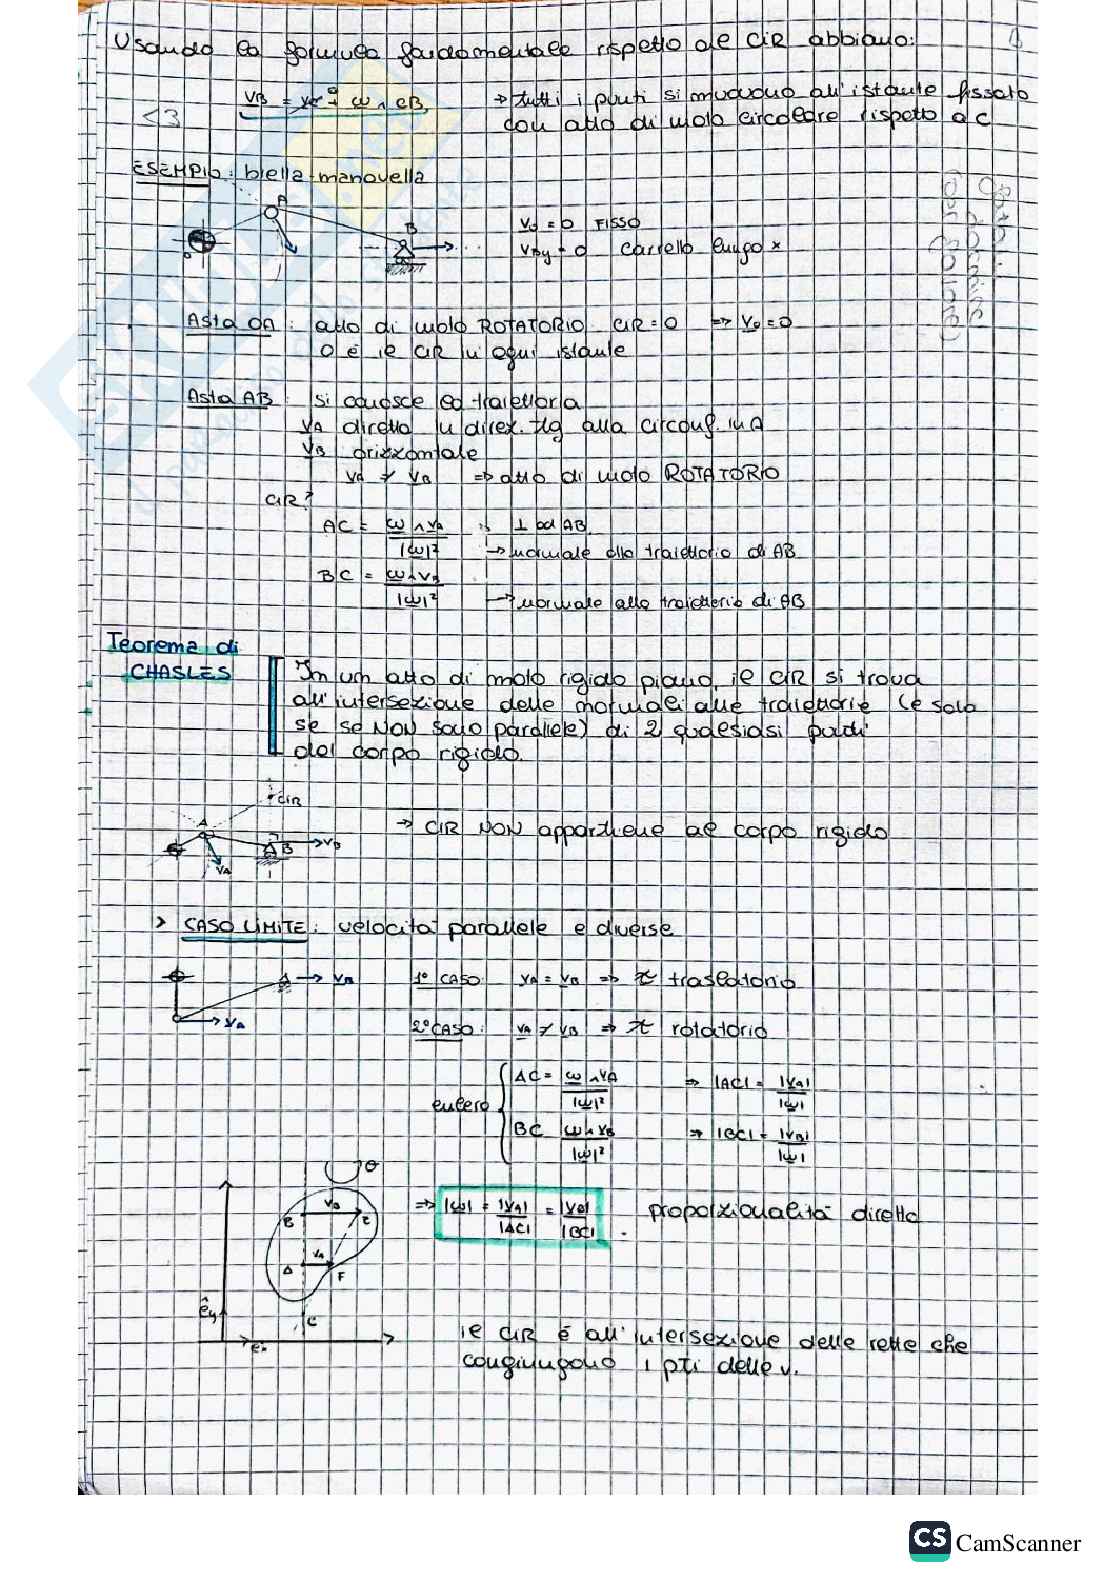 Usando la formula fondamentale rispetto al CIR abbiamo:
vB = vc + ω ∧ CB → tutti i punti si muovono all'istante fissato
<3 con atto di moto circolare rispetto a C
ESEMPIO: biella-manovella
A
B
vo = 0 FISSO
vBy = 0 carrello lungo x
Asta OA: atto di moto ROTATORIO CIR = O ⇒ vo = 0
O è il CIR in ogni istante
Asta AB: si conosce la traiettoria
vA diretta in direz. tg alla circonf. in A
vB orizzontale
vA ≠ vB ⇒ atto di moto ROTATORIO
CIR?
AC = ω ∧ vA / |ω|² ⊥ ad AB
→ normale alla traiettoria di AB
BC = ω ∧ vB / |ω|²
→ normale alla traiettoria di AB
Teorema di
CHASLES
In un atto di moto rigido piano, il CIR si trova
all'intersezione delle normali alle traiettorie (e solo
se se NON sono parallele) di 2 qualsiasi punti
del corpo rigido.
CIR
A
B vB
vA
→ CIR NON appartiene al corpo rigido
> CASO LIMITE: velocità parallele e diverse
vB
vA
1° CASO: vA = vB ⇒ traslatorio
2° CASO: vA ≠ vB ⇒ rotatorio
eulero
AC = ω ∧ vA / |ω|² ⇒ |AC| = |vA| / |ω|
BC ω ∧ vB / |ω|² ⇒ |BC| = |vB| / |ω|
θ
vB
B E
vA
A F
C
êy
⇒ |ω| = |vA| / |AC| = |vB| / |BC| . proporzionalità diretta
il CIR è all'intersezione delle rette che
congiungono i pti delle v.
CS CamScanner